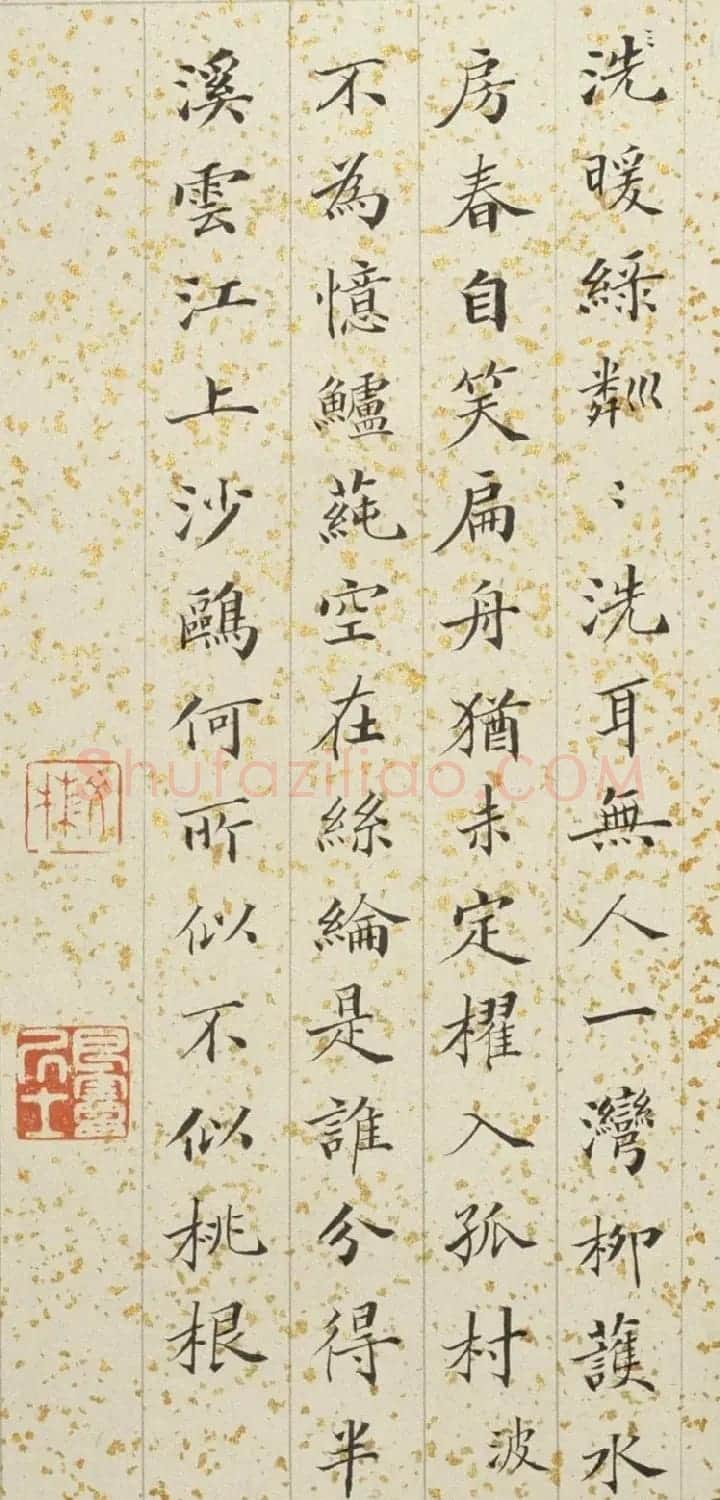 洗暖綠粼〻洗耳無人一灣柳護水
房春自笑扁舟猶未定櫂入孤村波
不為憶鱸蒓空在絲綸是誰分得半
溪雲江上沙鷗何所似不似桃根
Shufaziliao.COM